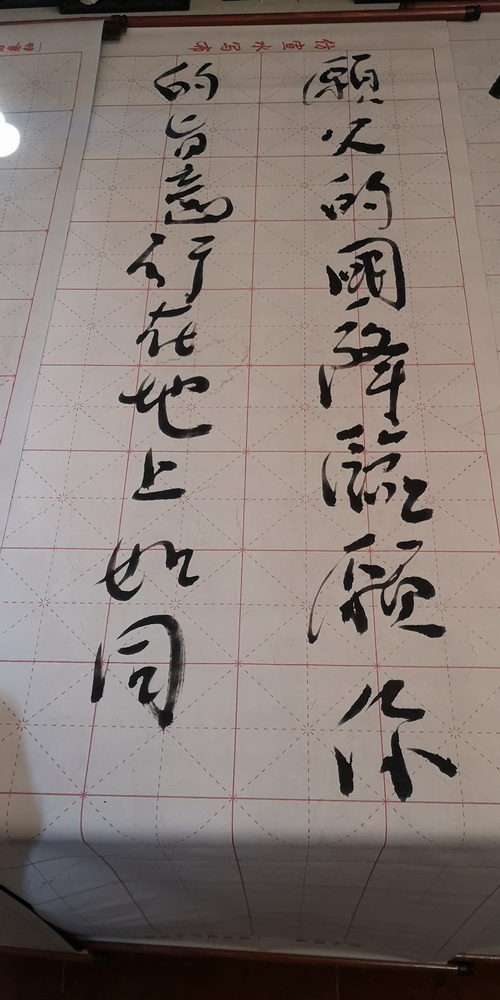 仿宣水写布
願父的國降臨願你
的旨意行在地上如同